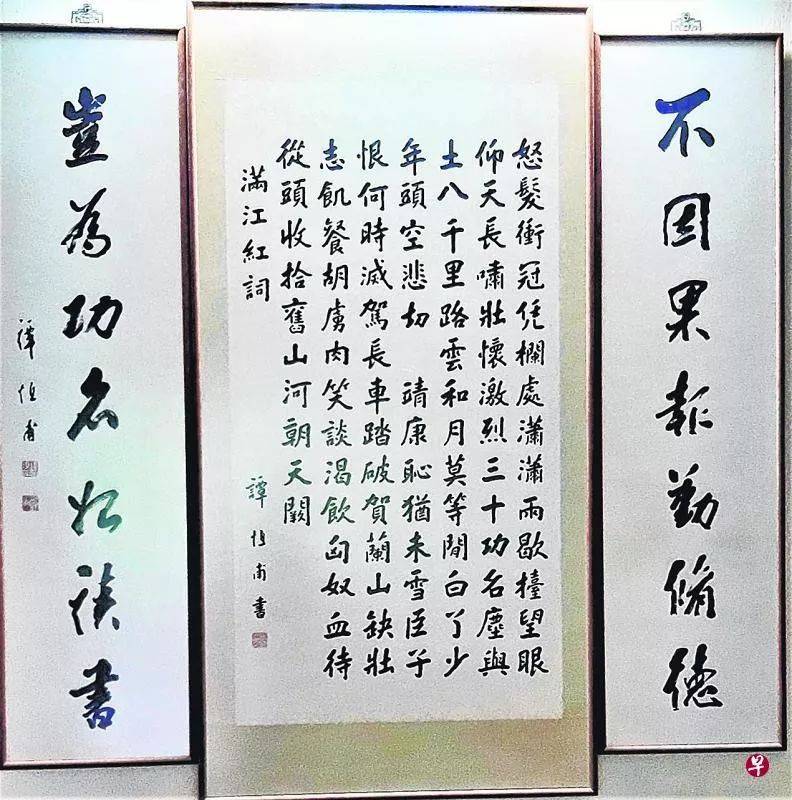 不因果報勤脩德
怒髮衝冠凭欄處瀟瀟雨歇擡望眼
仰天長嘯壯懷激烈三十功名塵與
土八千里路雲和月莫等閒白了少
年頭空悲切 靖康恥猶未雪臣子
恨何時滅駕長車踏破賀蘭山缺壯
志飢餐胡虜肉笑談渴飲匈奴血待
從頭收拾舊山河朝天闕
滿江紅詞
譚恒甫書
豈為功名始讀書
譚恒甫
早